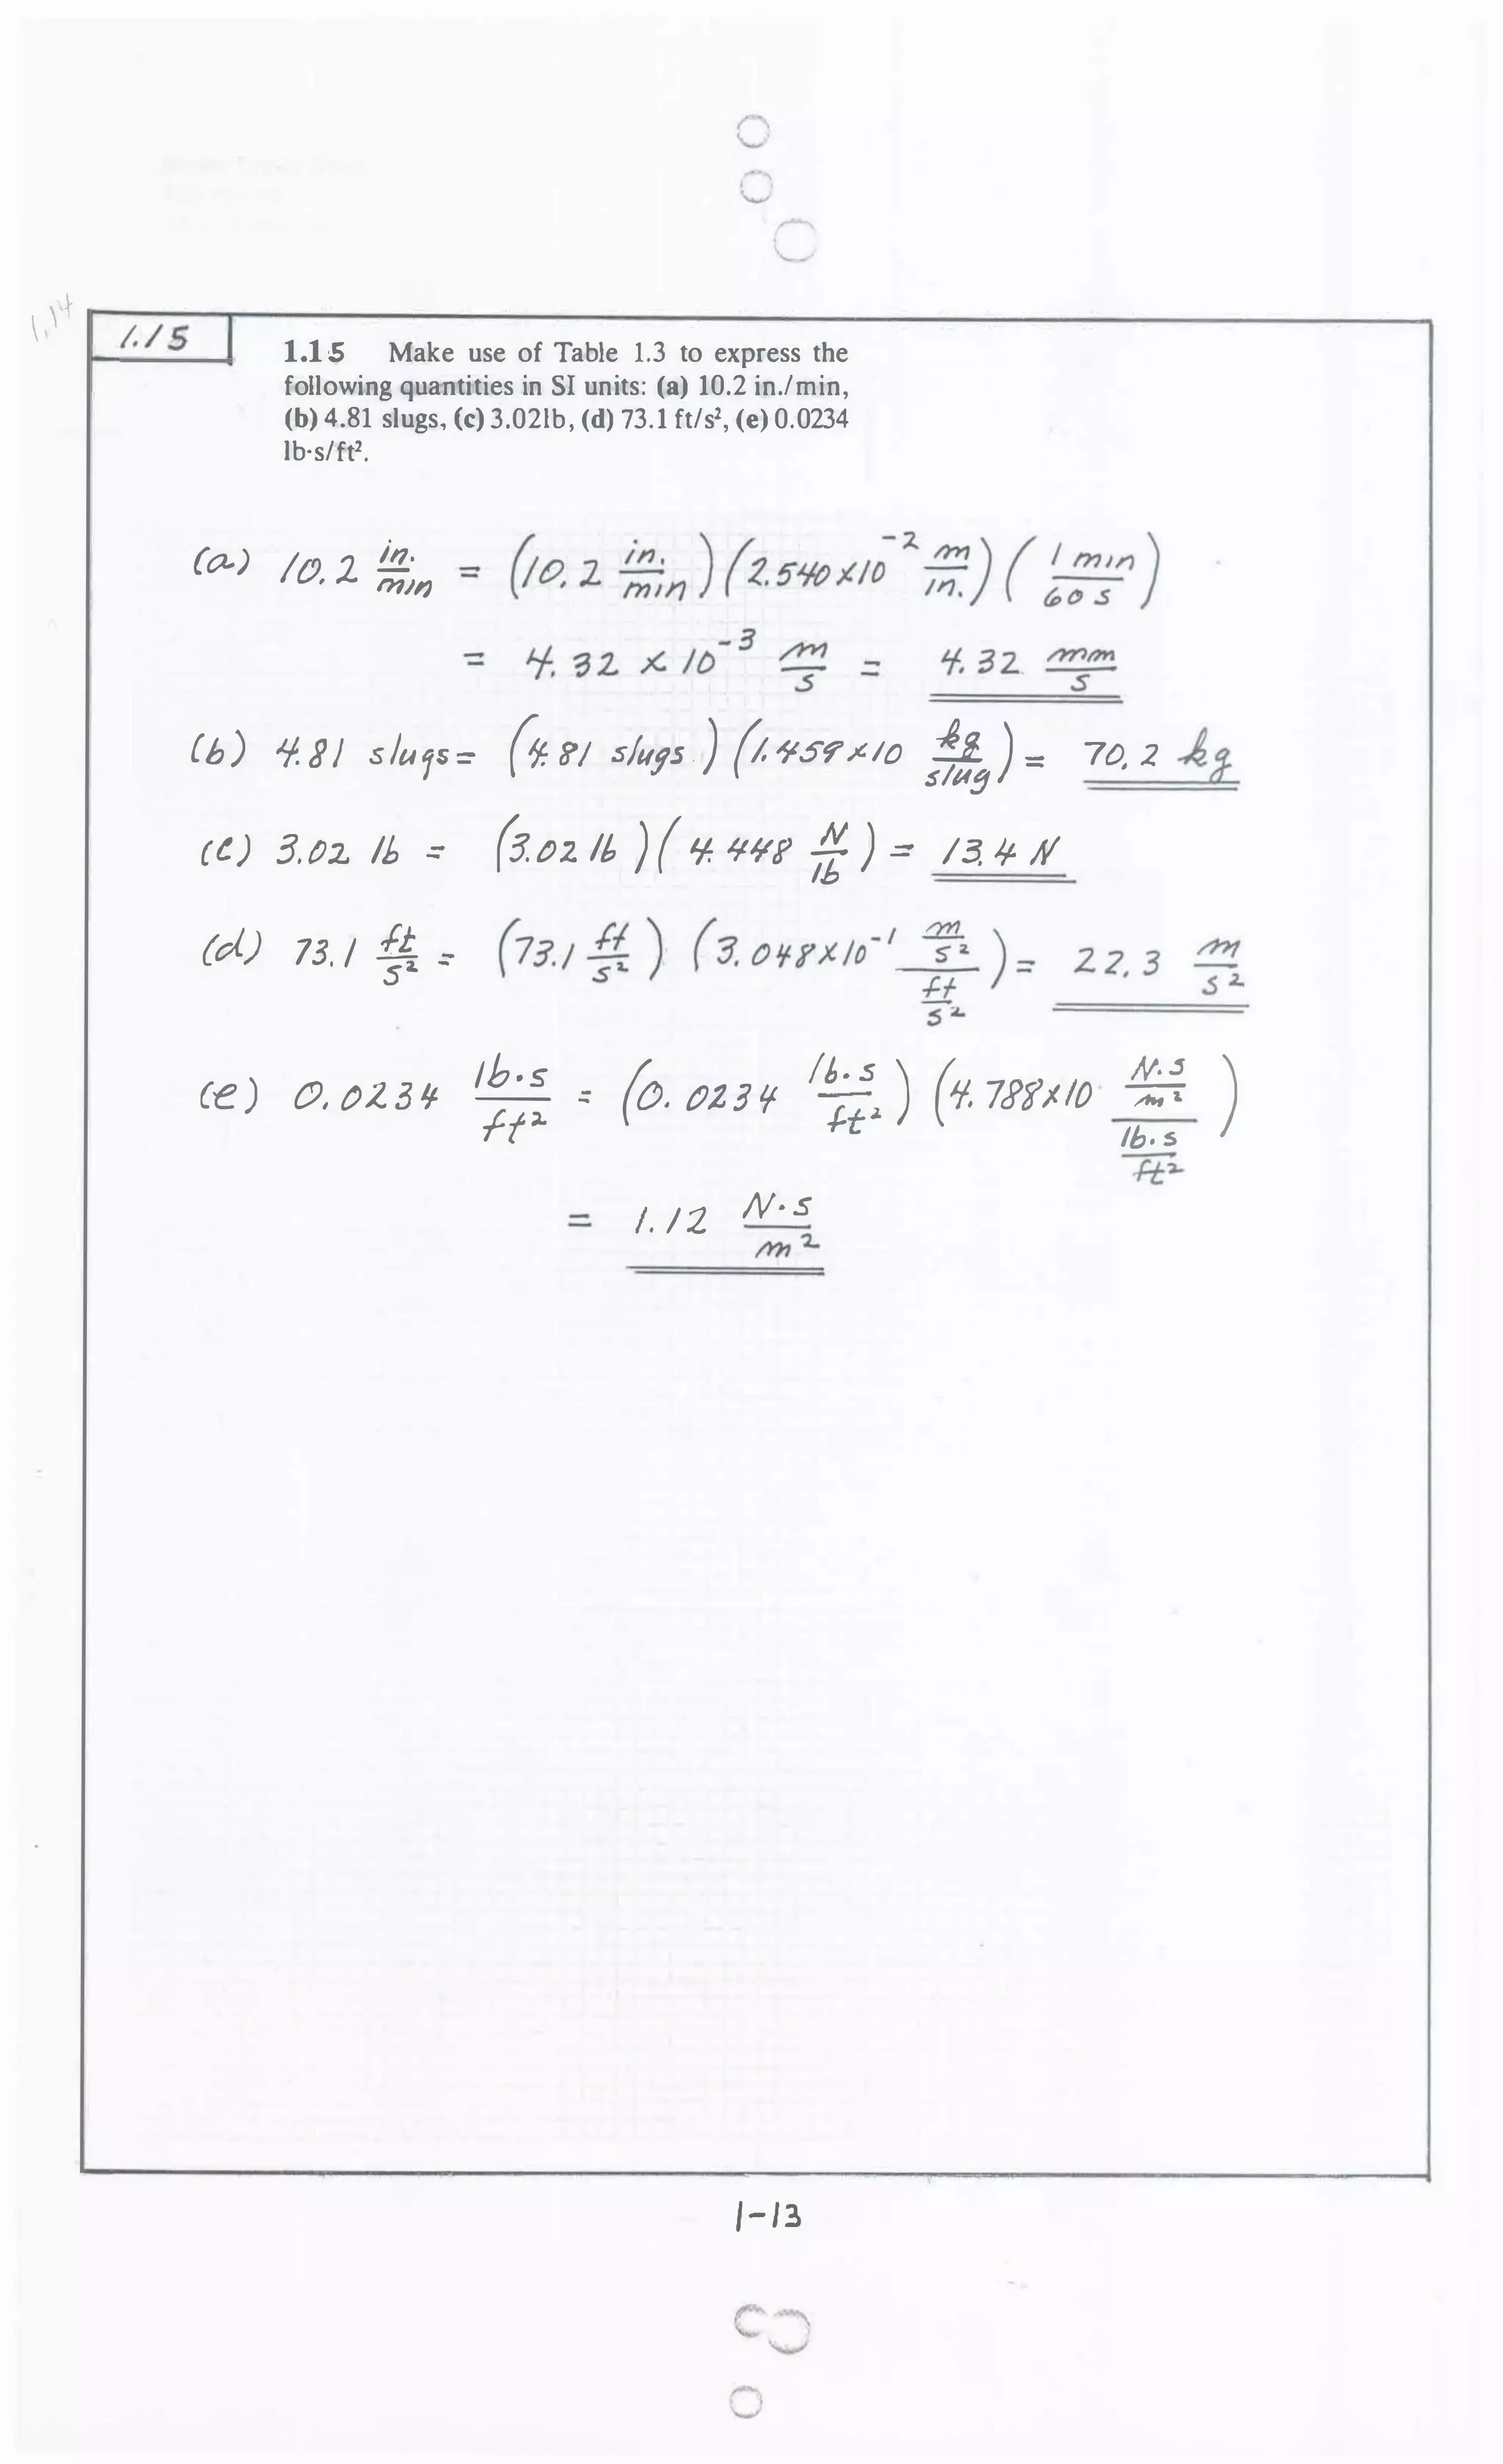 1.14
1.15
1.15 Make use of Table 1.3 to express the
following quantities in SI units: (a) 10.2 in./min,
(b) 4.81 slugs, (c) 3.02lb, (d) 73.1 ft/s², (e) 0.0234
lb·s/ft².
(a) 10.2 in./min = (10.2 in./min)(2.540×10⁻² m/in.)(1 min/60 s)
= 4.32 × 10⁻³ m/s = 4.32 mm/s
(b) 4.81 slugs = (4.81 slugs)(1.459×10 kg/slug) = 70.2 kg
(c) 3.02 lb = (3.02 lb)(4.448 N/lb) = 13.4 N
(d) 73.1 ft/s² = (73.1 ft/s²)(3.048×10⁻¹ m/s² / ft/s²) = 22.3 m/s²
(e) 0.0234 lb·s/ft² = (0.0234 lb·s/ft²)(4.788×10 N·s/m² / lb·s/ft²)
= 1.12 N·s/m²
1-13